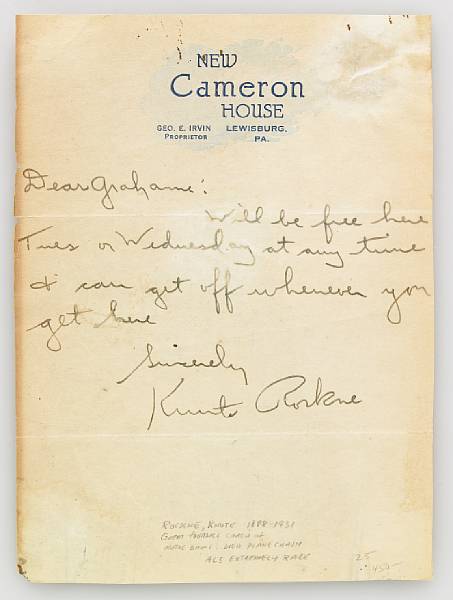 NEW
Cameron
HOUSE
GEO. E. IRVIN LEWISBURG,
PROPRIETOR PA.
Dear Grahame:
Will be free here
Tues or Wednesday at any time
& can get off whenever you
get here
Sincerely
Knute Rockne
ROCKNE, KNUTE 1888-1931
GREAT FOOTBALL COACH OF
NOTRE DAME. DIED PLANE CRASH
ALS EXTREMELY RARE
25
450-